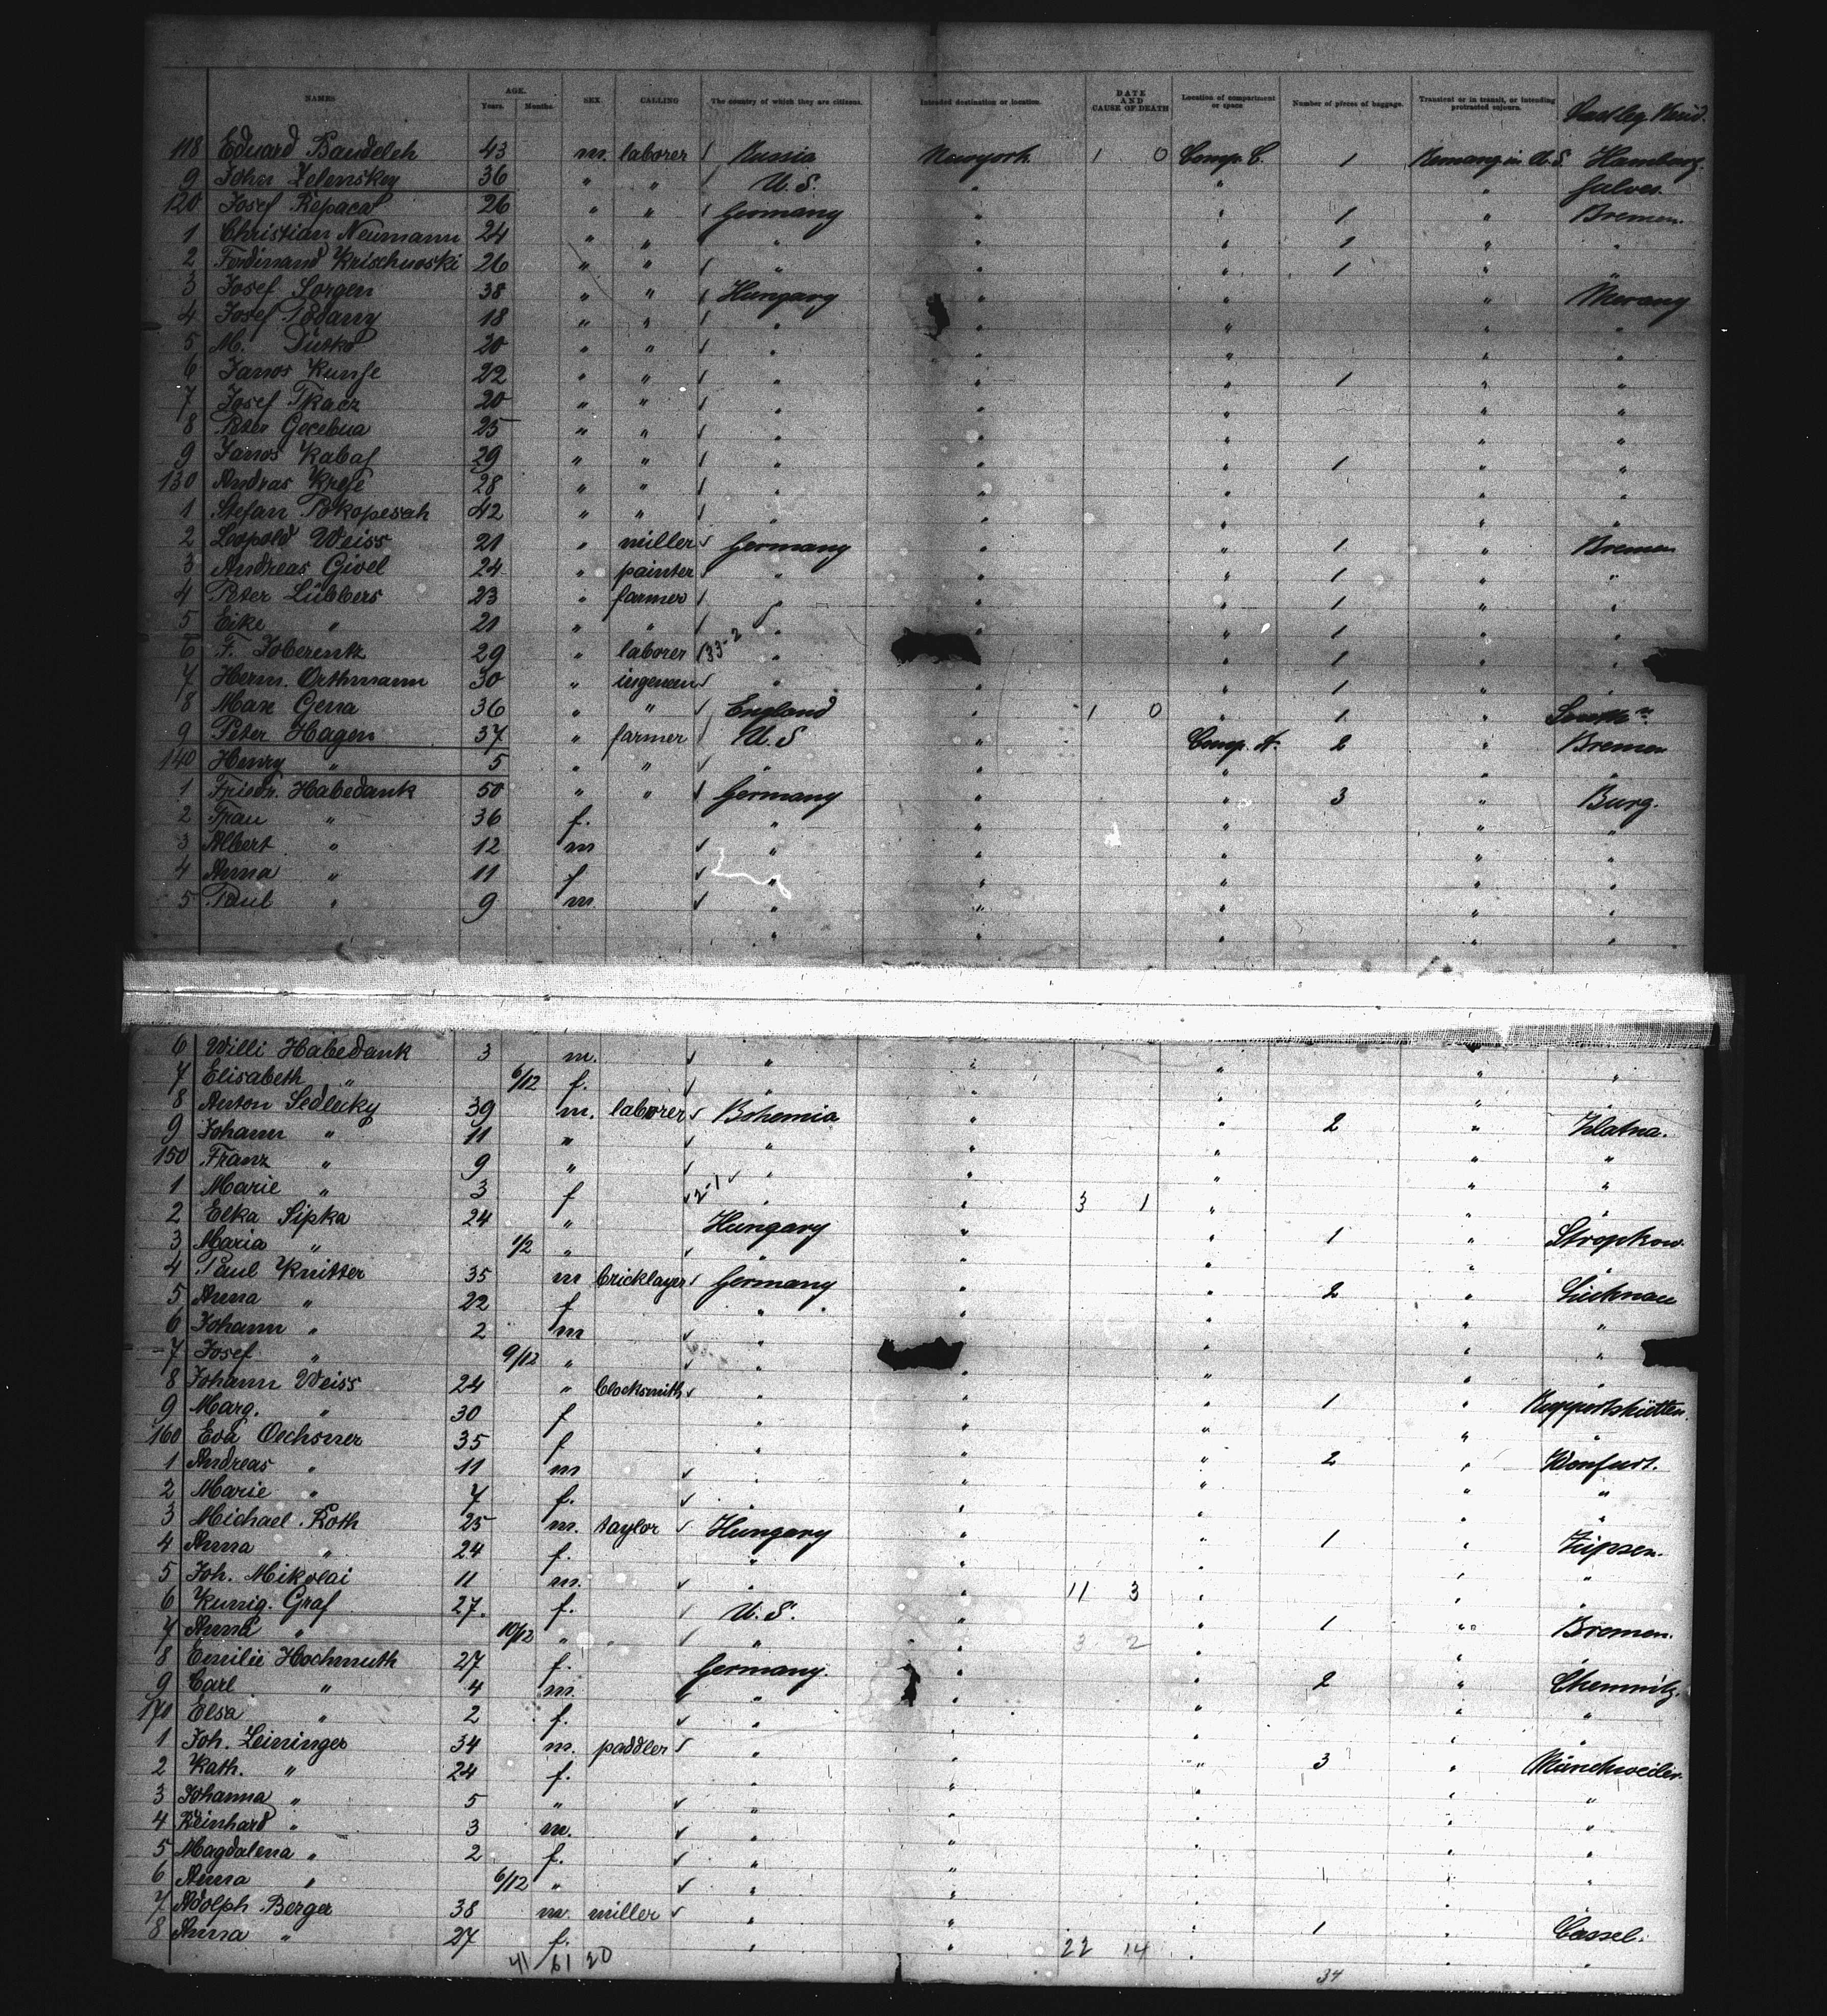 NAMES AGE. Years. Months. SEX. CALLING The country of which they are citizens. Intended destination or location. DATE AND CAUSE OF DEATH Location of compartment or space Number of pieces of baggage. Transient or in transit, or intending protracted sojourn. Last leg. Resid.
118 Eduard Baudelch 43 m. laborer Russia Newyork 1 0 Comp. C. 1 Hamburg.
9 John Zelenskey 36 " " U. S. " " "
120 Josef Repacal 26 " " Germany " " 1 " Bremen.
1 Christian Neumann 24 " " " " 1 " "
2 Ferdinand Krischnoski 26 " " " " " 1 " "
3 Josef Sorgen 38 " " Hungary " " "
4 Josef Podany 18 " " " " " " "
5 M. Dusko 20 " " " " " " "
6 Janos Kunse 22 " " " " " 1 " "
7 Josef Tkacz 20 " " " " " " "
8 Peter 25 " " " " " " "
9 Janos Kabaj 29 " " " " " 1 " "
130 Andras 28 " " " " " " "
1 Stefan 42 " " " " " " "
2 Leopold Weiss 21 " miller Germany " " 1 " Bremen
3 Andreas Givel 24 " painter " " " 1 " "
4 Peter Lübbers 23 " farmer " " " 1 " "
5 Eike " 21 " " " " " 1 " "
6 F. Joberentz 29 " laborer 133-2 " " " 1 " "
7 Herm. Orthmann 30 " ingeneen " " " 1 " "
8 Max Gena 36 " " England " 1 0 " 1 "
9 Peter Hagen 37 " farmer U. S " Comp. A. 2 " Bremen
140 Henry " 5 " " " " " "
1 Friedr. Habedank 50 " " Germany " " 3 " Burg.
2 Frau " 36 f. " " " " "
3 Albert " 12 m " " " " "
4 Anna " 11 f " " " " "
5 Paul " 9 m. " " " " "
6 Willi Habedank 3 m. " " " " "
7 Elisabeth " 6/12 f. " " " " "
8 Anton Sedlecky 39 m. laborer Bohemia " " 2 " Zlatna.
9 Johann " 11 " " " " " "
150 Franz " 9 " " " " " "
1 Marie " 3 f 2-1 " " 3 1 " " "
2 Elka Sipka 24 " Hungary " " 1 " Stropkow.
3 Maria " 1/2 " " " " " "
4 Paul Knitter 35 m bricklayer Germany " " 2 "
5 Anna " 22 f " " " " "
6 Johann " 2 m " " " " "
7 Josef " 9/12 " " " " " "
8 Johann Weiss 24 " Clocksmith " " " 1 "
9 Marg. " 30 f " " " " "
160 Eva Oechsner 35 f " " " 2 "
1 Andreas " 11 m " " " " "
2 Marie " 7 f. " " " " "
3 Michael Roth 25 m. taylor Hungary " " 1 " Zipsen.
4 Anna " 24 f. " " " " "
5 Joh. Mikolai 11 m. " " 11 3 " " "
6 Kunig. Graf 27. f. U. S. " " 1 " Bremen.
7 Anna " 10/12 " " " 3 2 " " "
8 Emilie Hochmuth 27 f. Germany. " " 2 " Chemnitz.
9 Carl " 4 m. " " " " "
170 Elsa " 2 f. " " " " "
1 Joh. Leininger 34 m. paddler " " " 3 " Münchweiler.
2 Kath. " 24 f. " " " " "
3 Johanna " 5 " " " " " "
4 Reinhard " 3 m. " " " " "
5 Magdalena " 2 f. " " " " "
6 Anna " 6/12 " " " " " "
7 Adolph Berger 38 m. miller " " " 1 " Cassel.
8 Anna " 27 f. " " 22 14 " " "
41 61 20 34